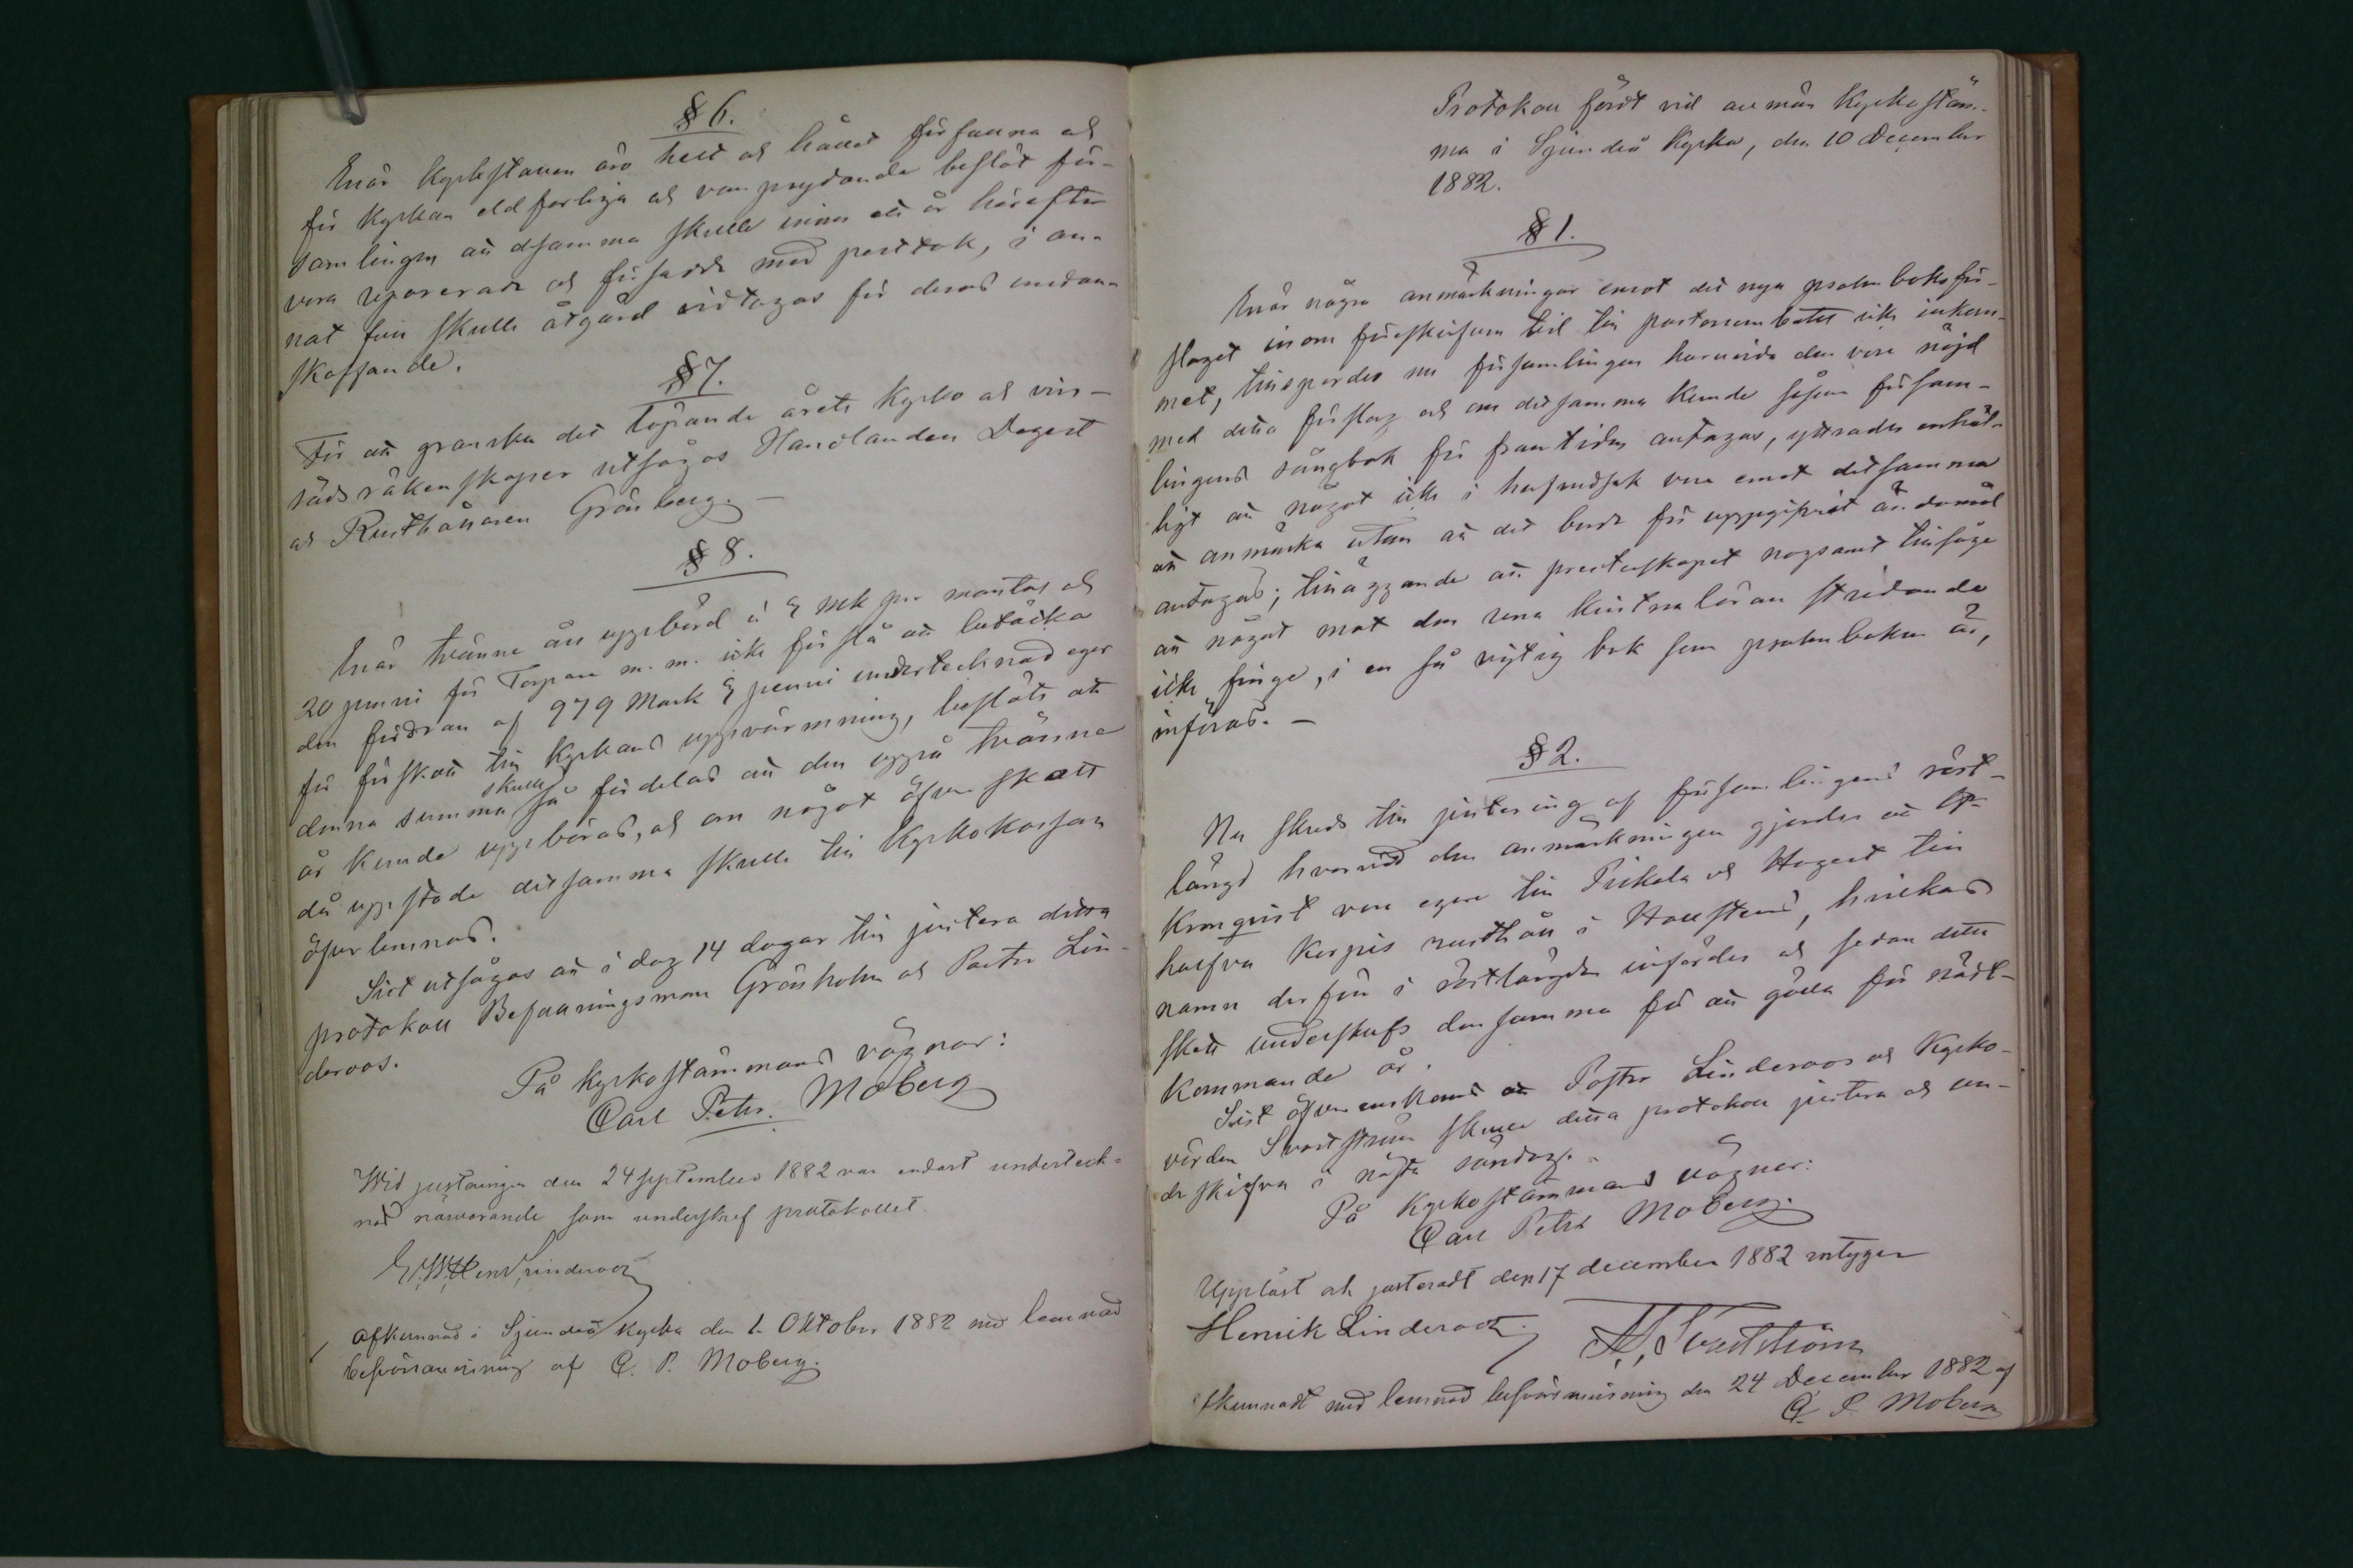 § 6.
Enär Kyrkstallen äro helt och hållet förfallna och
för Kyrkan eldfarliga och van prydande beslöt för-
samlingen att desamma skulle innan ett år härefter
vara reparerade och försedda med perttak, i an-
nat fall skulle åtgärd vidtagas för deras undan-
skaffande.
§ 7.
För att granska det löpande årets Kyrko och vin-
sädsräkenskaper utsågos Handlanden Degert
och Rusthållaren Grönberg. —
§ 8.
Enär tvänne års uppbörd à 5 mk per mantal och
20 penni för Torpare m. m. icke förslå att betäcka
den fordran af 979 Mark 5 penni undertecknad eger
för förskott till Kyrkans uppvärmning, beslöts att
denna summa skulle så fördelas att den uppå tvänne
år kunde uppbäras, och om något öfver skott
då uppstode detsamma skulle till Kyrkokassan
öfverlemnas.
Sist utsågos att i dag 14 dagar till justera detta
protokoll Befallningsman Grönholm och Pastor Lin-
deroos.
På Kyrkostämmans vägnar:
Carl Petr. Moberg
Wid justeringen den 24 september 1882 var endast underteck-
nad närvarande som underskref protokollet.
G. W. Henr. Linderoos
Afkunnad i Sjundeå kyrka den 1. Oktober 1882 med lemnad
besvärsanvisning af C. P. Moberg.
Protokoll fördt vid allmän Kyrkostäm-
ma i Sjundeå Kyrka, den 10 December
1882.
§ 1.
Enär några anmärkningar emot det nya psalmboksför-
slaget inom föreskrifven tid till pastorsembetet icke inkom-
met, tillspordes nu församlingen huruvida den vore nöjd
med detta förslag och om detsamma kunde såsom försam-
lingens sångbok för framtiden antagas, yttrades enhäl-
ligt att något icke i hufvudsak vore emot detsamma
att anmärka utan att det borde för uppgifvet ändamål
antagas; tilläggande att presterskapet nogsamt tillsåge
att något mot den rena kristna läran stridande
icke finge, i en så vigtig bok som psalmboken är,
införas. —
§ 2.
Nu skreds till justering af församlingens röst-
längd hvarvid den anmärkningen gjordes att Ap.
Kronqvist vore egare till Pickala och Hagert till
halfva Karpis rusthåll i Kallstens, hvilkas
namn derför i röstlängden infördes och sedan detta
skett underskrefs densamma för att gälla för näst-
kommande år.
Sist öfverenskoms att Pastor Linderoos och Kyrko-
värden Svartström skulle detta protokoll justera och un-
derskifva i nästa söndag. -
På Kyrkostämmans vägnar:
Carl Petr Moberg.
Uppläst och justeradt den 17 december 1882 intygar
Henrik Linderoos. A. Svartström
Afkunnadt med lemnad besvärsanvisning den 24 December 1882 af
C. P. Moberg